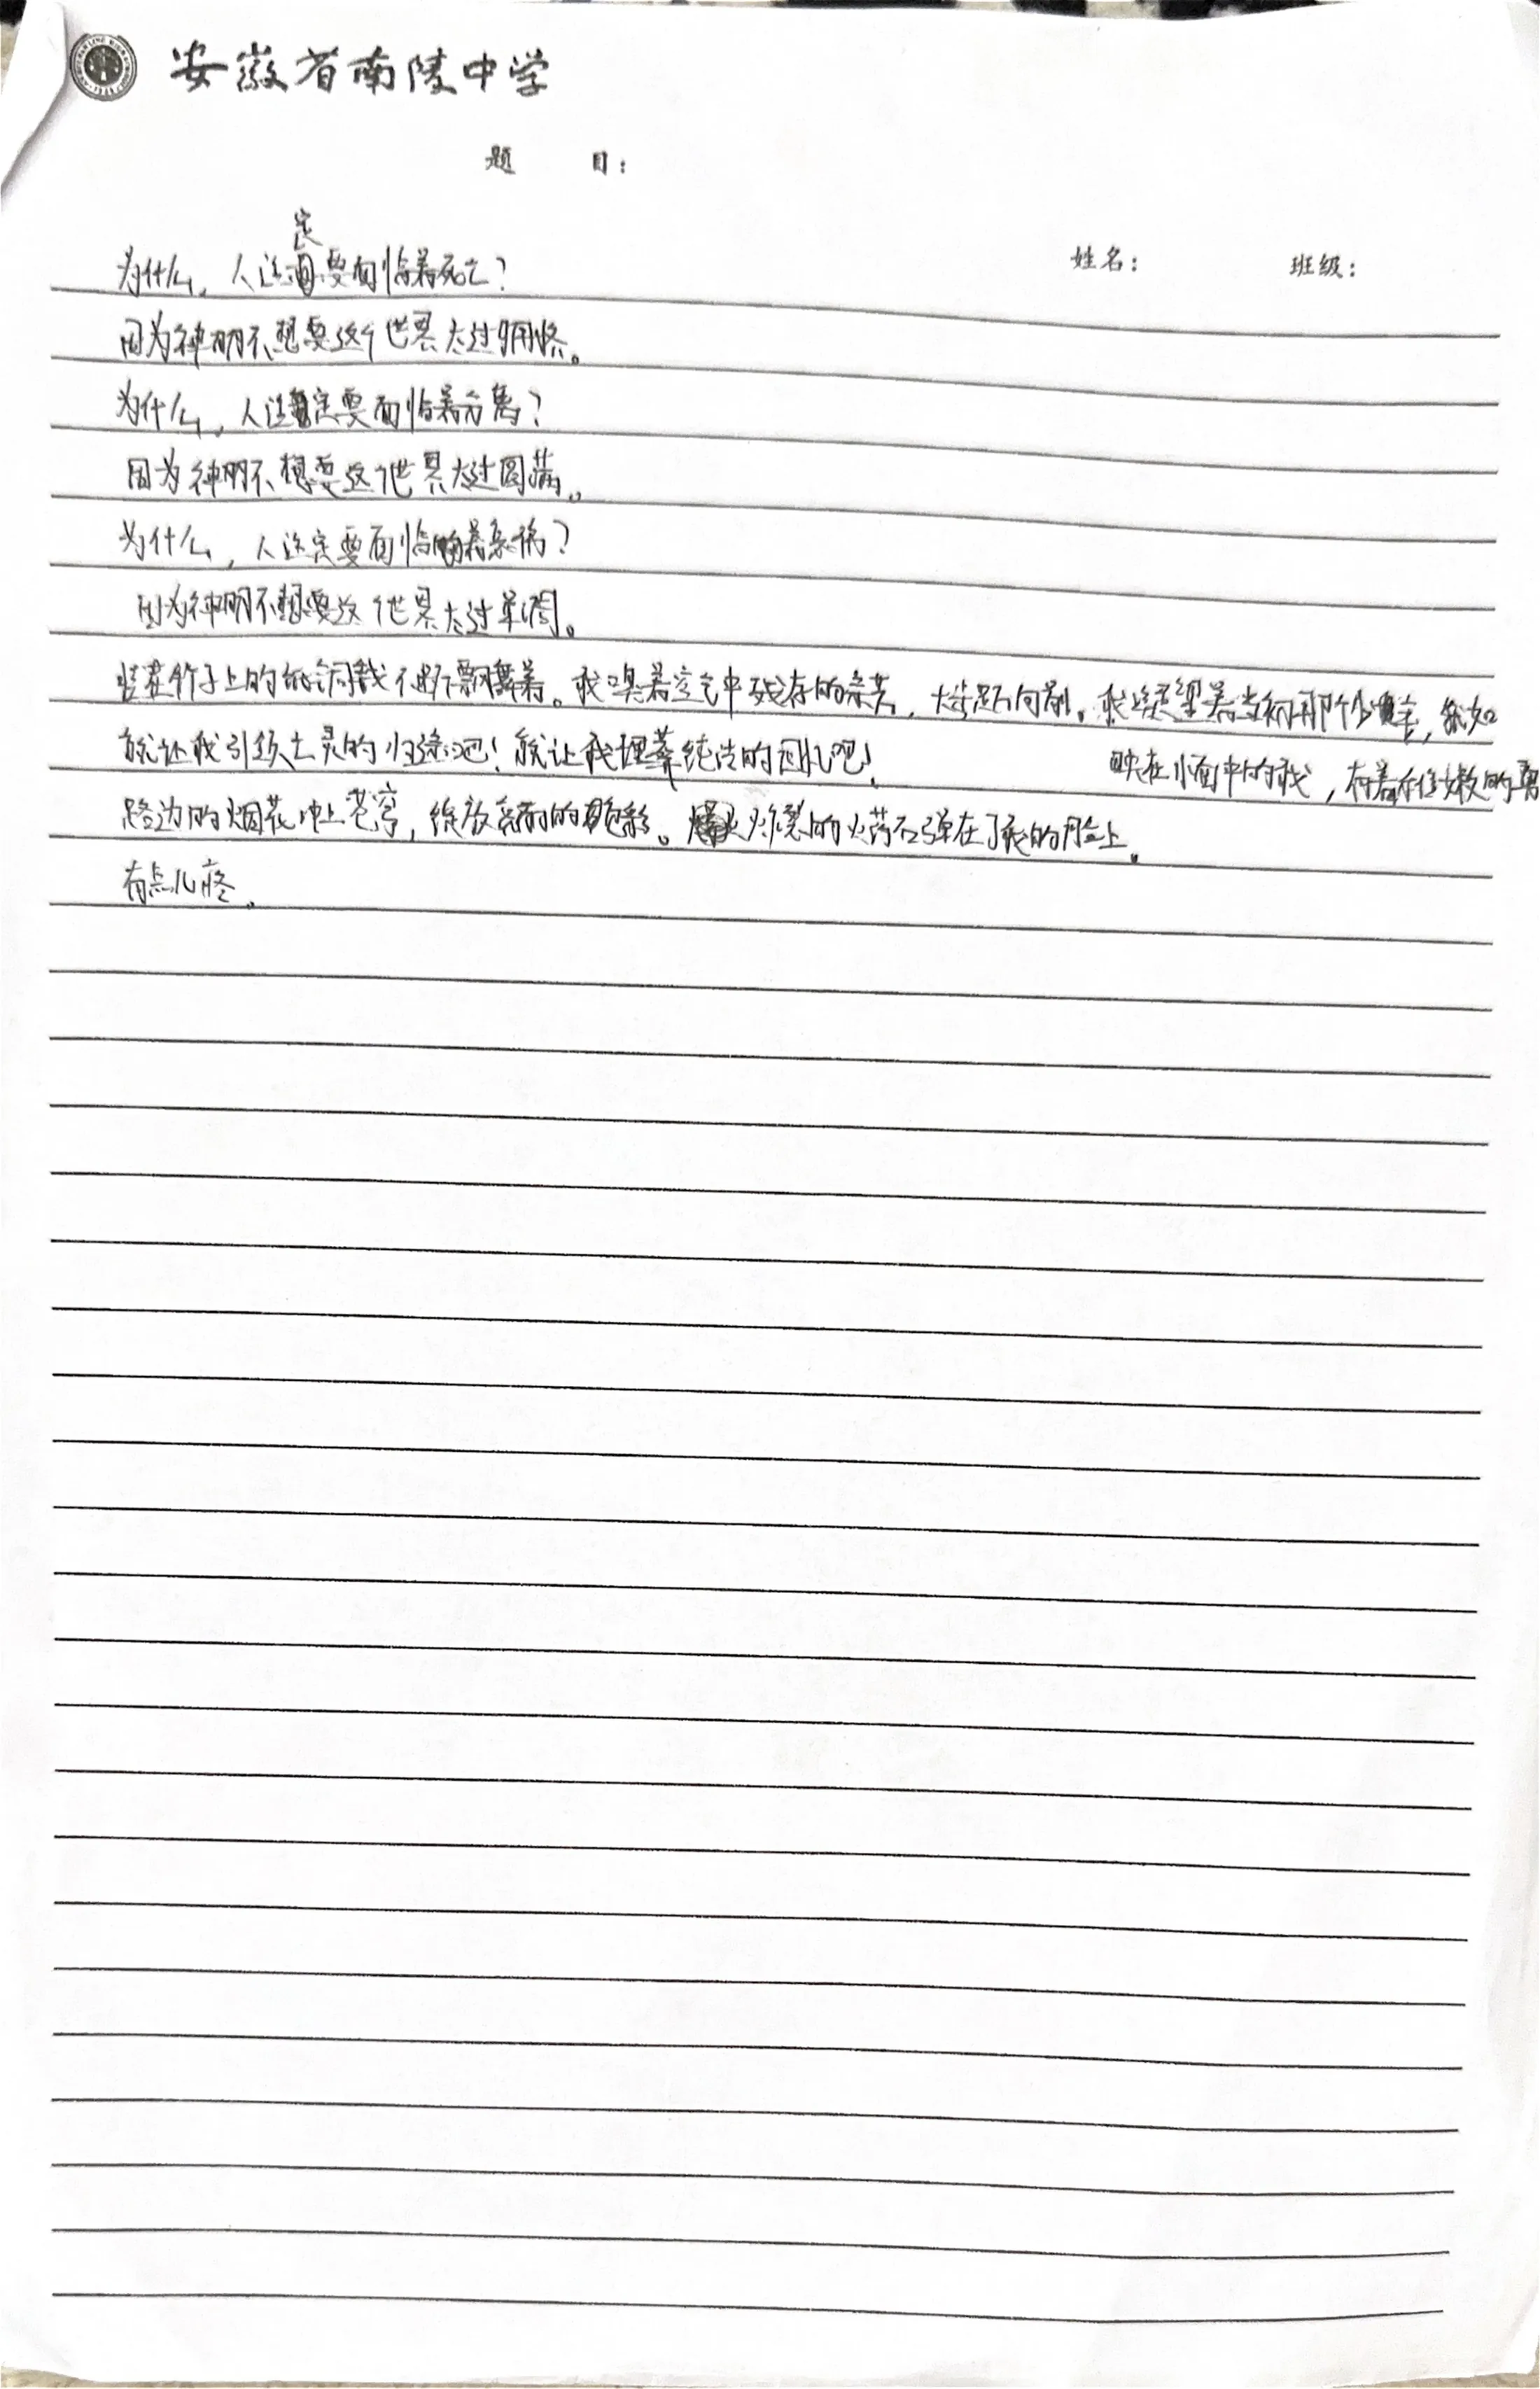 安徽省南陵中学
题 目：
姓名： 班级：
为什么，人注定要面临着死亡？
因为神明不想要这个世界太过拥挤。
为什么，人注定要面临着分离？
因为神明不想要这个世界太过圆满。
为什么，人注定要面临着哀祸？
因为神明不想要这个世界太过单调。
挂在竹子上的 不断飘舞着。我嗅着空气中残存的余芳，大步向前。我凝望着当初那个少年，就如
映在水面中的我，有着不位数的勇
就让我引领亡灵的归途吧！就让我埋葬纯洁的 吧！
路边的烟花冲上苍穹，绽放亮丽的色彩。炸裂的火药石弹在了我的脸上。
有点儿疼。